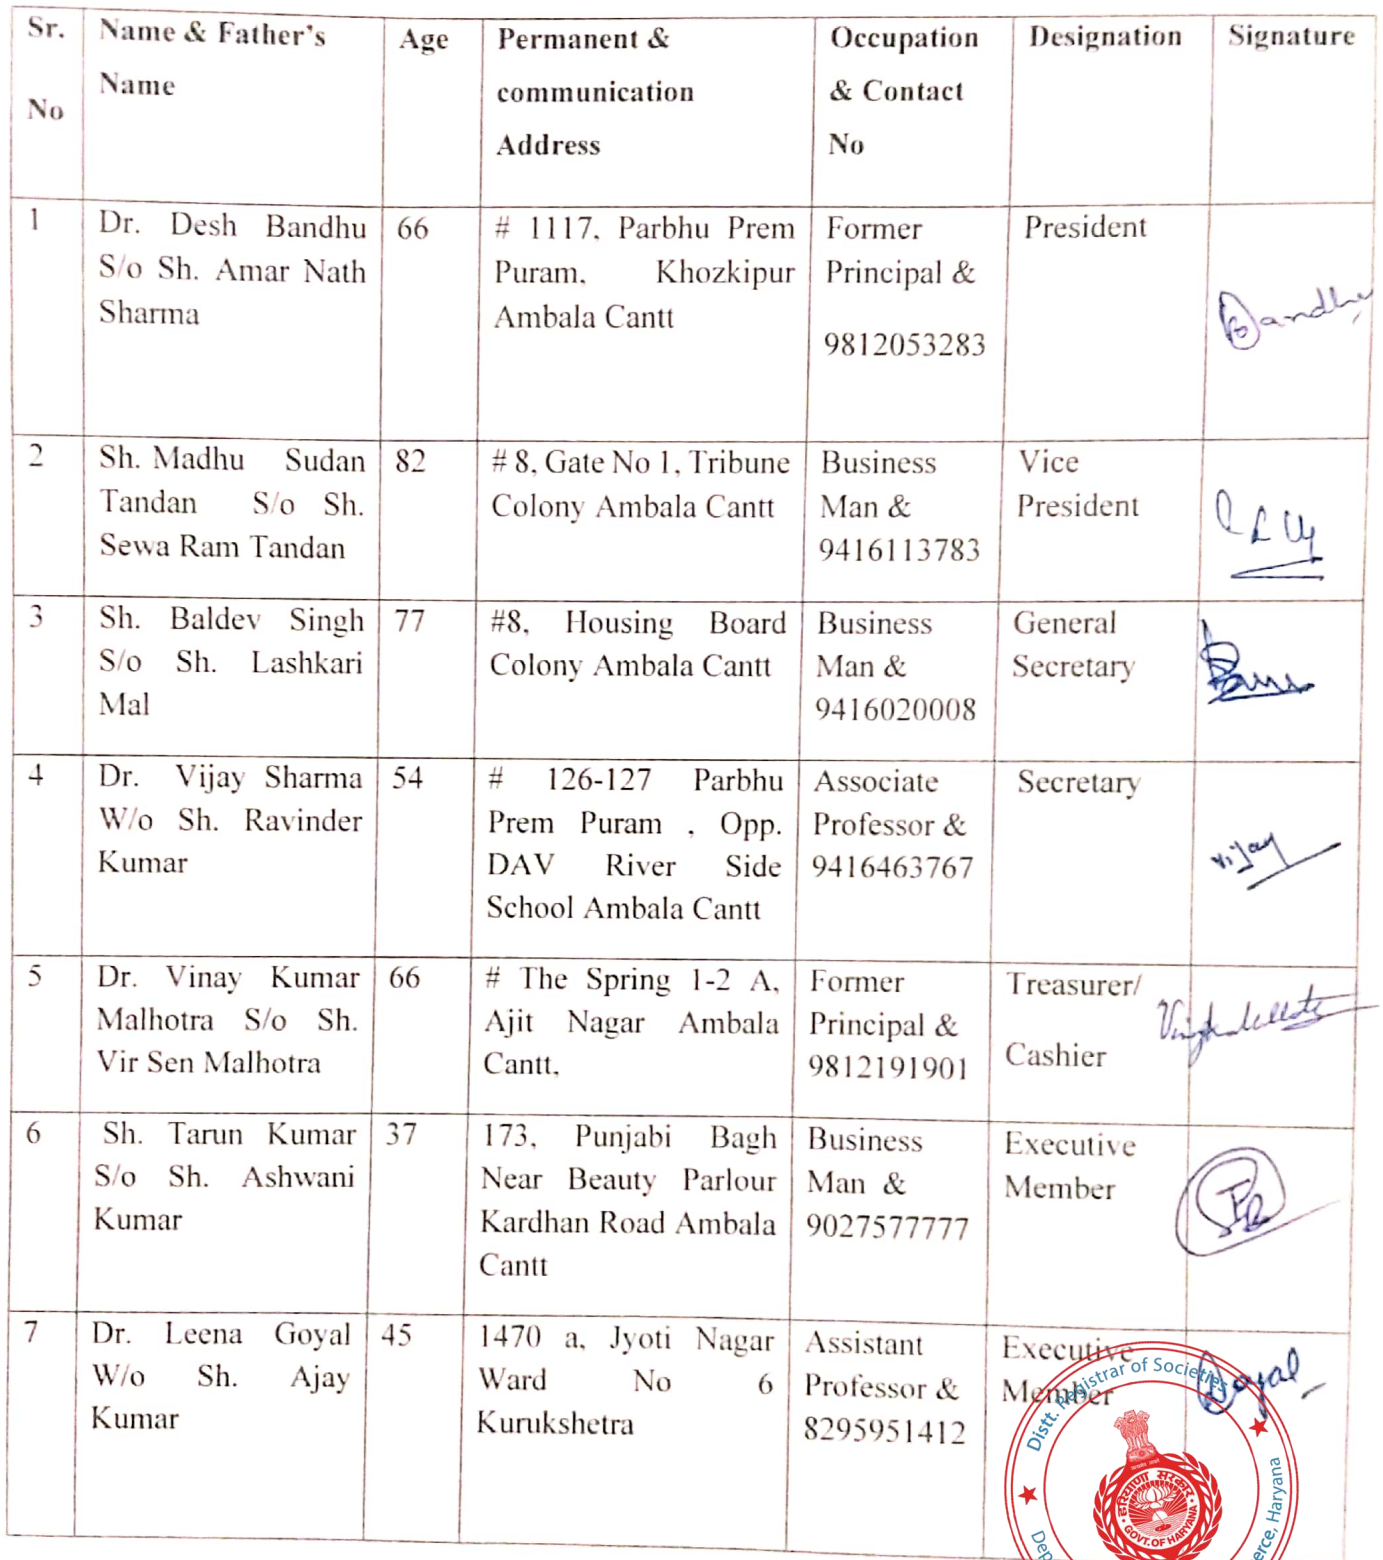 Sr. No
Name & Father's
Name
Age
Permanent &
communication
Address
Occupation
& Contact
No
Designation
Signature
1
Dr. Desh Bandhu
S/o Sh. Amar Nath
Sharma
66
# 1117, Parbhu Prem
Puram, Khozkipur
Ambala Cantt
Former
Principal &
9812053283
President
Bandhu
2
Sh. Madhu Sudan
Tandan S/o Sh.
Sewa Ram Tandan
82
# 8, Gate No 1, Tribune
Colony Ambala Cantt
Business
Man &
9416113783
Vice
President
3
Sh. Baldev Singh
S/o Sh. Lashkari
Mal
77
#8, Housing Board
Colony Ambala Cantt
Business
Man &
9416020008
General
Secretary
4
Dr. Vijay Sharma
W/o Sh. Ravinder
Kumar
54
# 126-127 Parbhu
Prem Puram , Opp.
DAV River Side
School Ambala Cantt
Associate
Professor &
9416463767
Secretary
Vijay
5
Dr. Vinay Kumar
Malhotra S/o Sh.
Vir Sen Malhotra
66
# The Spring 1-2 A,
Ajit Nagar Ambala
Cantt,
Former
Principal &
9812191901
Treasurer/
Cashier
6
Sh. Tarun Kumar
S/o Sh. Ashwani
Kumar
37
173, Punjabi Bagh
Near Beauty Parlour
Kardhan Road Ambala
Cantt
Business
Man &
9027577777
Executive
Member
7
Dr. Leena Goyal
W/o Sh. Ajay
Kumar
45
1470 a, Jyoti Nagar
Ward No 6
Kurukshetra
Assistant
Professor &
8295951412
Executive
Member
Goyal
Distt. Registrar of Societies
हरियाणा सरकार
GOVT. OF HARYANA
Haryana